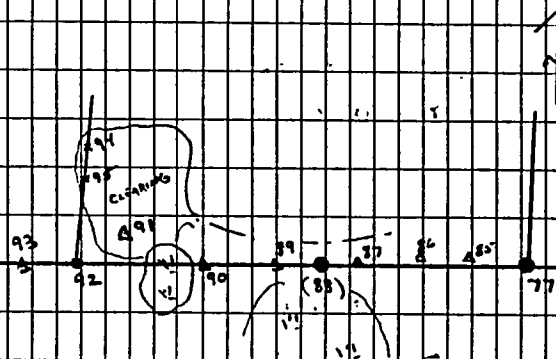 94
95
CLEARING
91
93
92
90
89
(88)
87
86
85
77